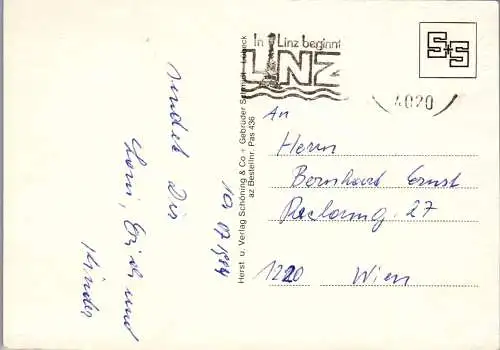 sendet Dir
Loni, Erich und
Kinder
10.07.1984
Herst. u. Verlag Schöning & Co + Gebrüder Schmidt · Lübeck
az Bestellnr. Pas 436
In Linz beginnt
LINZ
4020
S+S
An
Herrn
Bernhard Ernst
27
1220 Wien